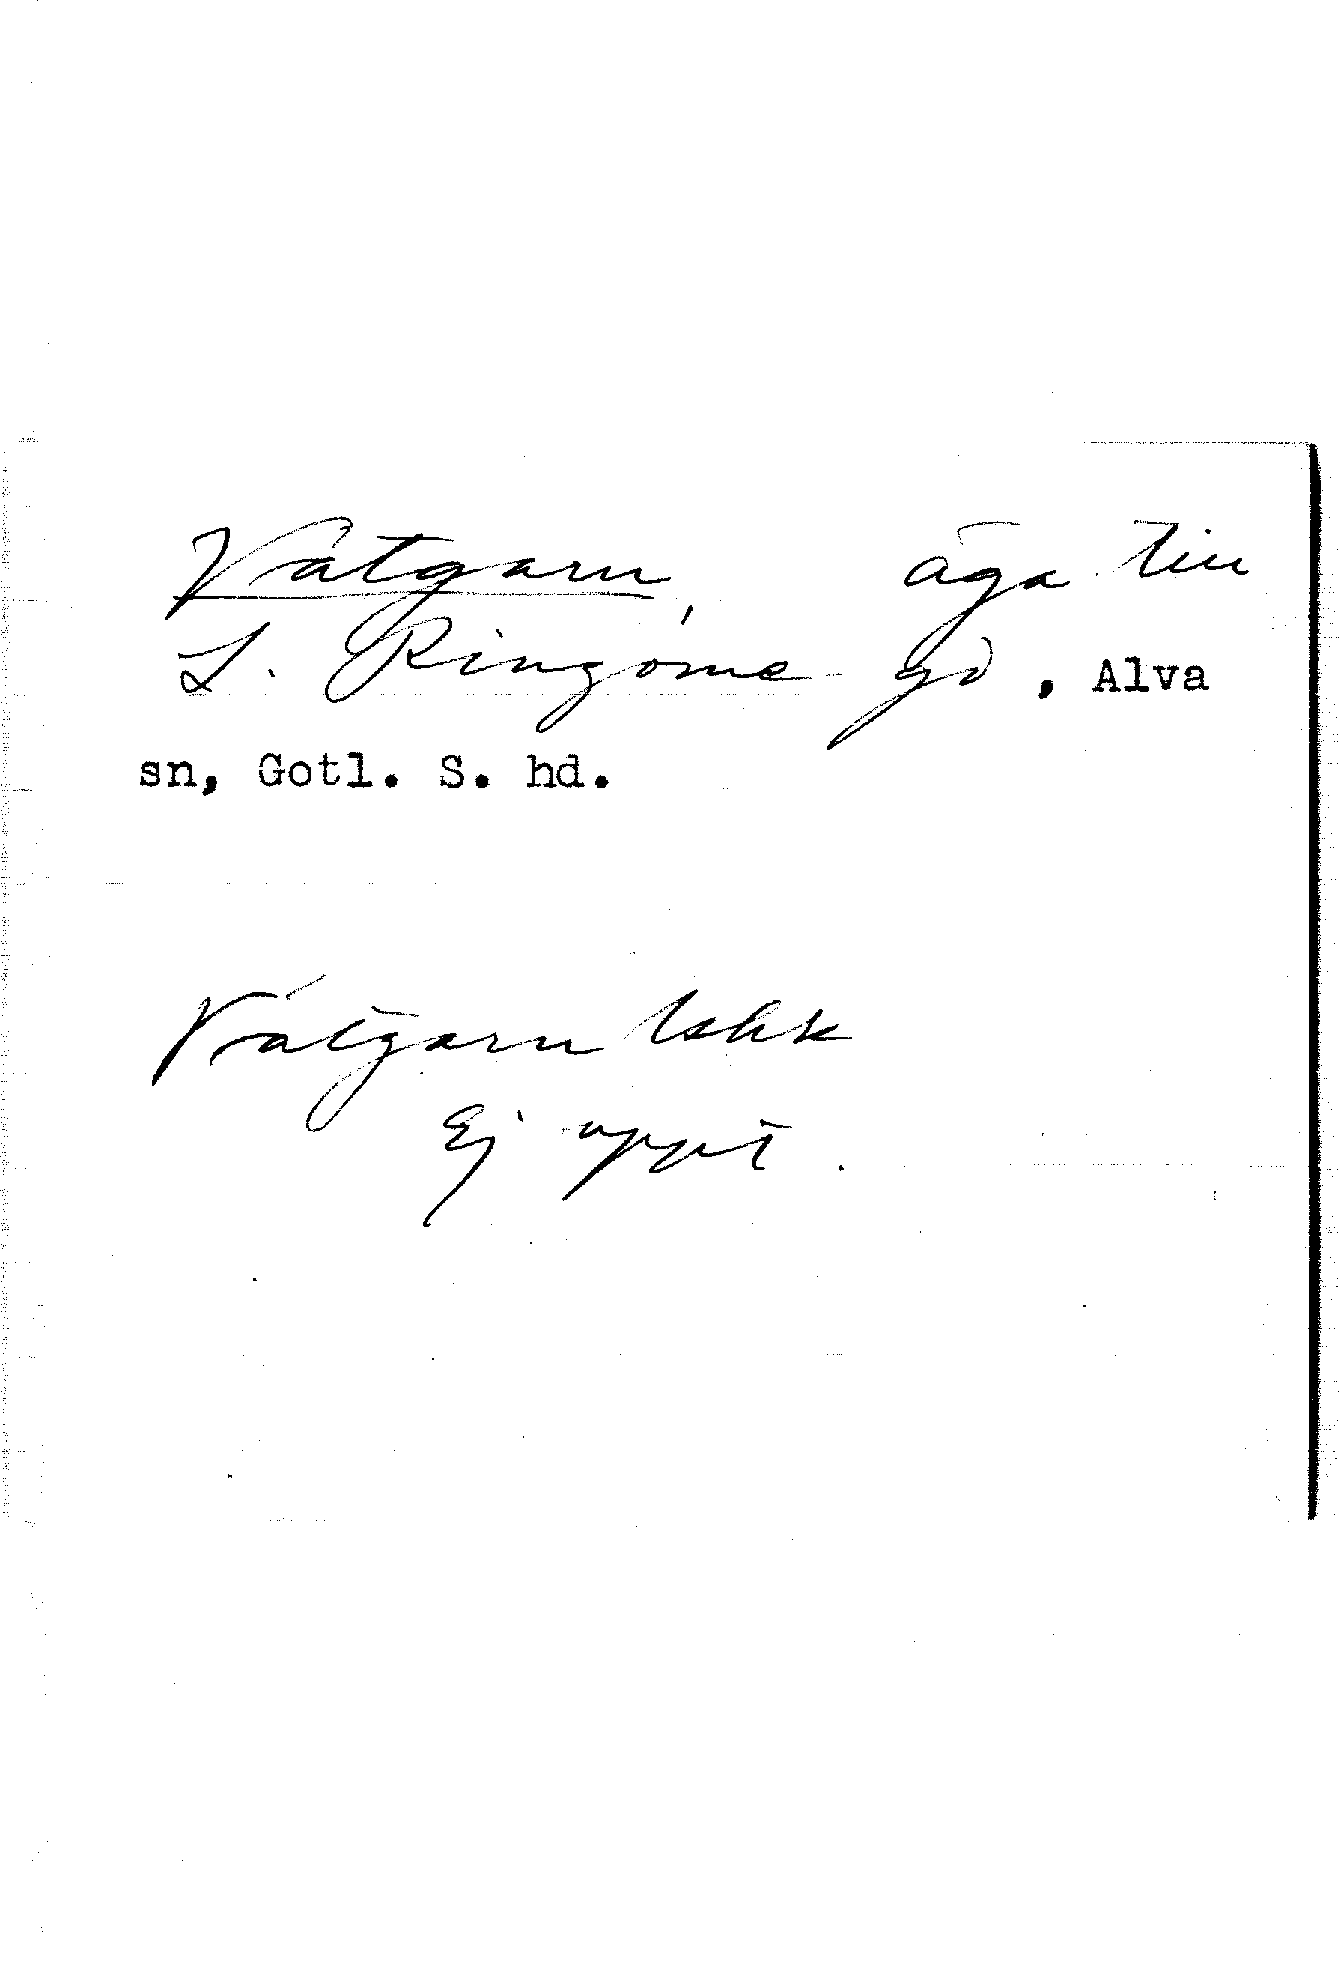 Vátgarn, äga till
L. Ringome gd, Alva
sn, Gotl. S. hd.
Vátgarn
Ej uppt.